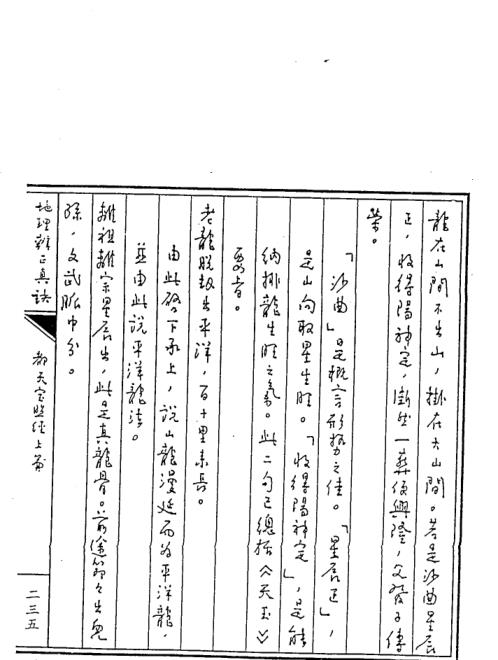 龍在山間不出山,掛在大山間。若是沙曲星辰
正,收得陽神定,斷然一葬便興隆,父發子傳
榮。
「沙曲」是概言形勢之佳。「星辰正」,
是山向取星生旺。「收得陽神定」,是能
納排龍生旺之氣。此二句已總括《天玉》
要旨。
老龍脫殼出平洋,百十里來長。
由此啓下承上,說山龍漫延而為平洋龍,
並由此說平洋龍法。
離祖離宗星辰出,此是真龍骨。前途節々出兒
孫,文武脈中分。
地理辨正真訣
都天寶照經上篇
二三五